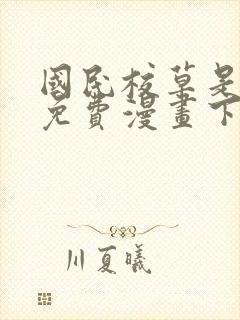 國民校草是
免費漫畫下
川夏曦